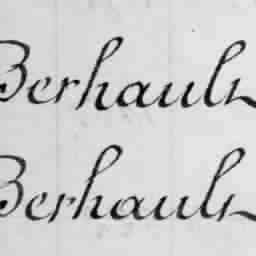 Berhauls
Berhauls